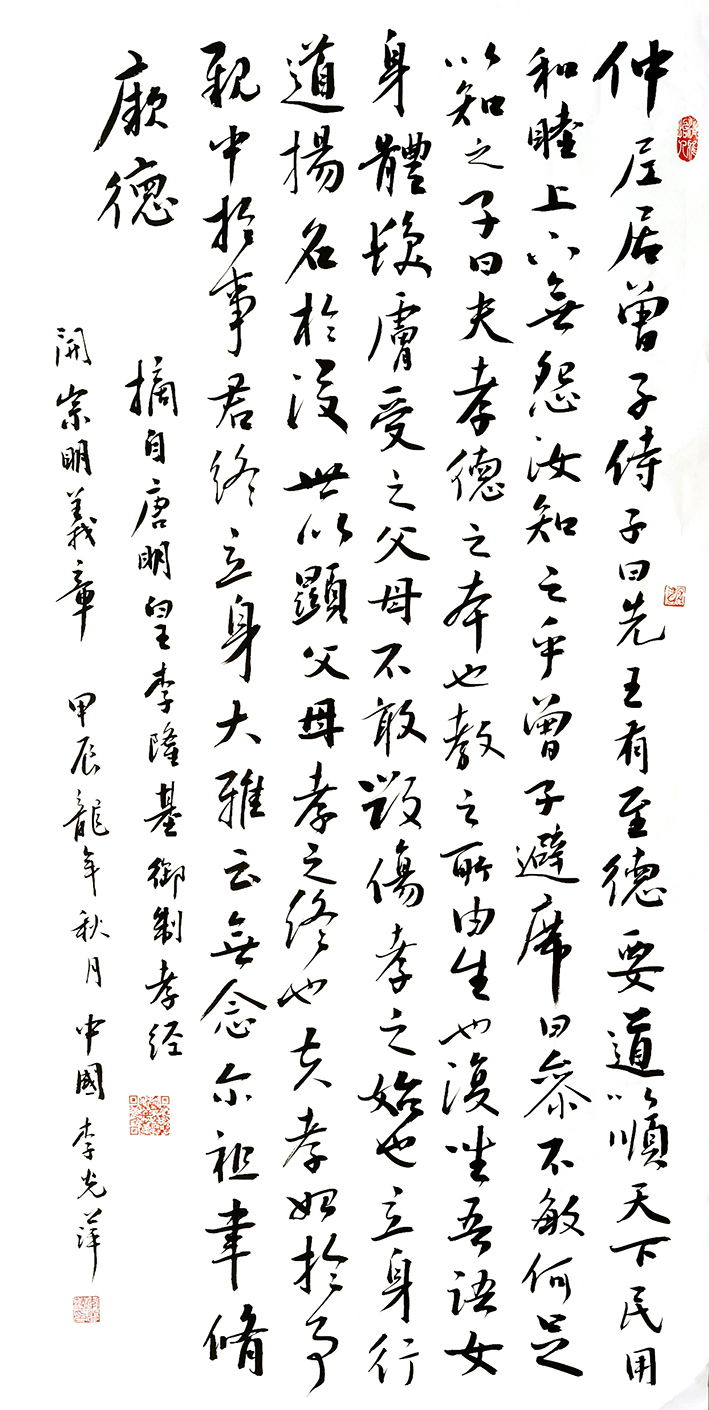 仲尼居曾子侍子曰先王有至德要道以順天下民用
和睦上下無怨汝知之乎曾子避席曰參不敏何足
以知之子曰夫孝德之本也教之所由生也復坐吾語女
身體髮膚受之父母不敢毀傷孝之始也立身行
道揚名於後世以顯父母孝之終也夫孝始於事
親中於事君終立身大雅云無念尔祖聿脩
厥德
摘自唐明皇李隆基御制孝经
開宗明義章 甲辰龍年秋月 中國 李光萍